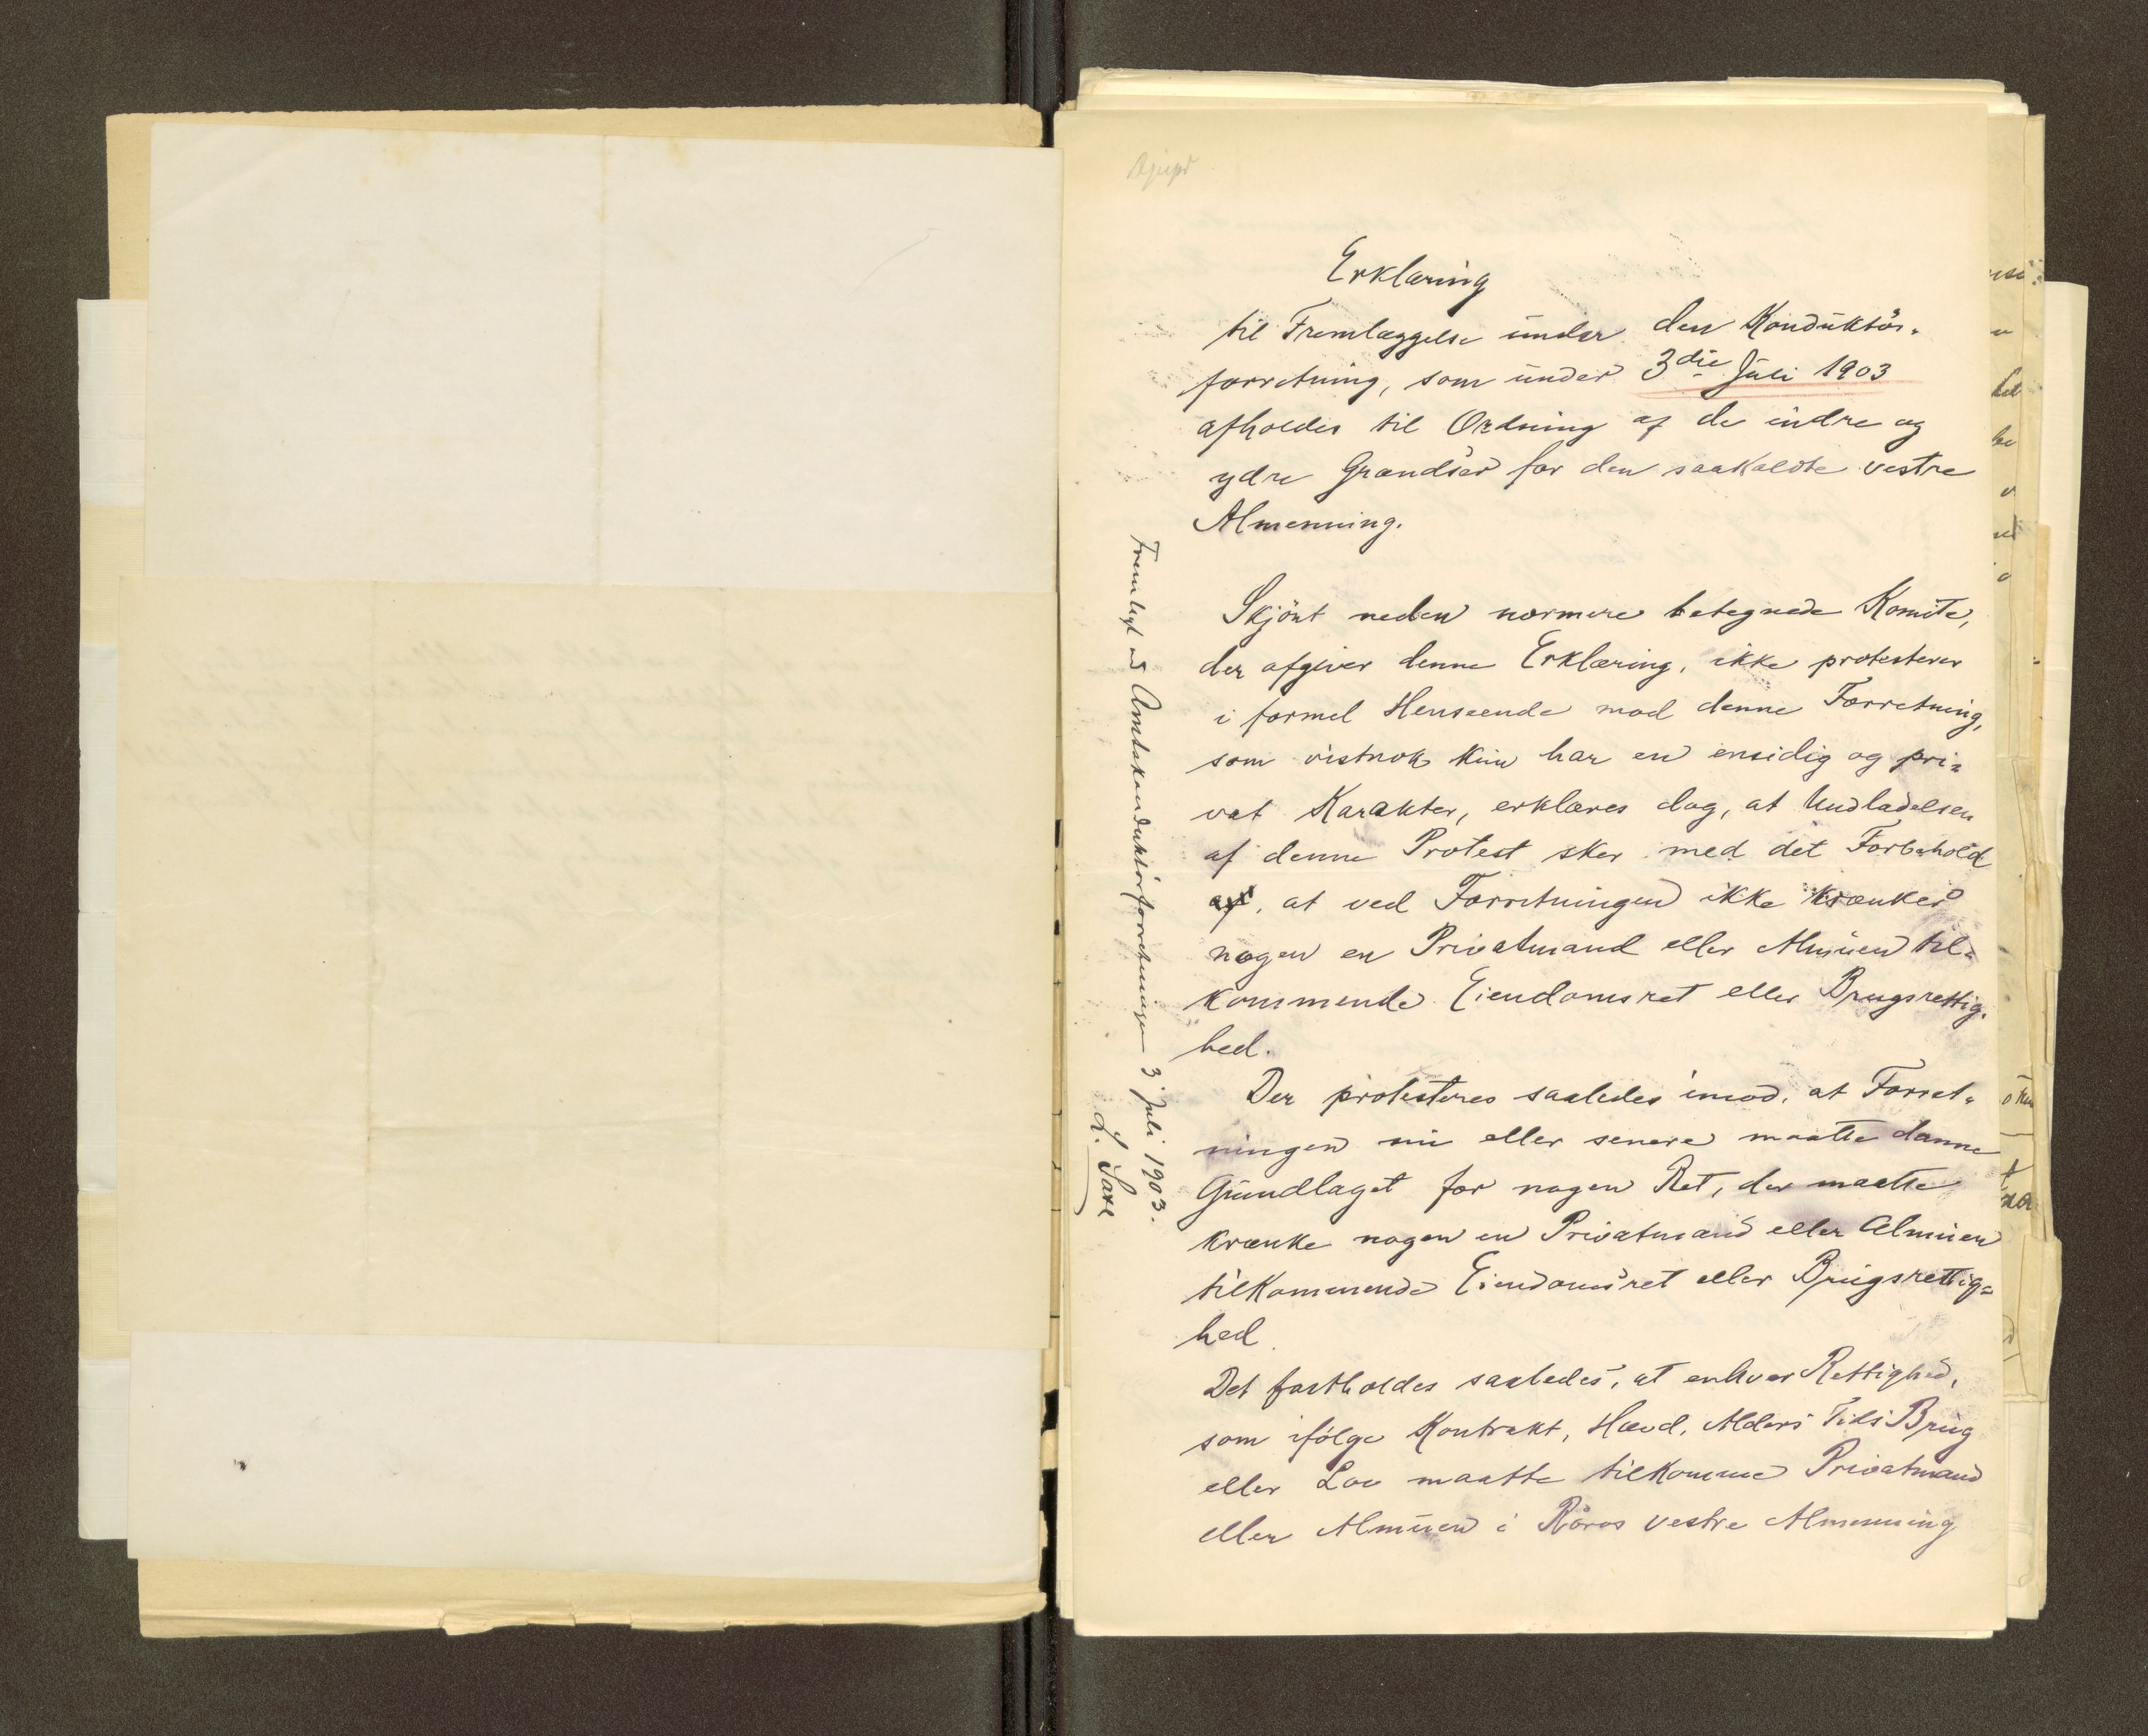 Erklæring
til Fremlæggelse under den Konduktör-
forretning, som under 3die Juli 1903
afholdes til Ordning af de indre og
ydre Grændser for den saakaldte vestre
Almenning.
Skjönt neden nærmere betegnede Komite,
der afgiver denne Erklæring, ikke protesterer
i formel Henseende mod denne Forretning,
som vistnok kun har en ensidig og pri=
vat Karakter, erklæres dog, at Undladelsen
af denne Protest sker med det Forbehold
at ved Forretningen ikke krænkes
nogen en Privatmand eller Almuen til=
kommende Eiendomsret eller Brugsrettig-
hed.
Der protesteres saaledes imod, at Forret-
ningen nu eller senere maatte danne
Grundlaget for nogen Ret, der maatte
krænke nogen en Privatmand eller Almuen
tilkommende Eiendomsret eller Brugsrettig=
hed.
Det fastholdes saaledes, at enhver Rettighed,
som ifölge Kontrakt, Hævd, Alders Tids Brug
eller Lov maatte tilkomme Privatmand
eller Almuen i Röros vestre Almenning
Fremlagt v Amtskonduktörforretningen 3 juli 1903.